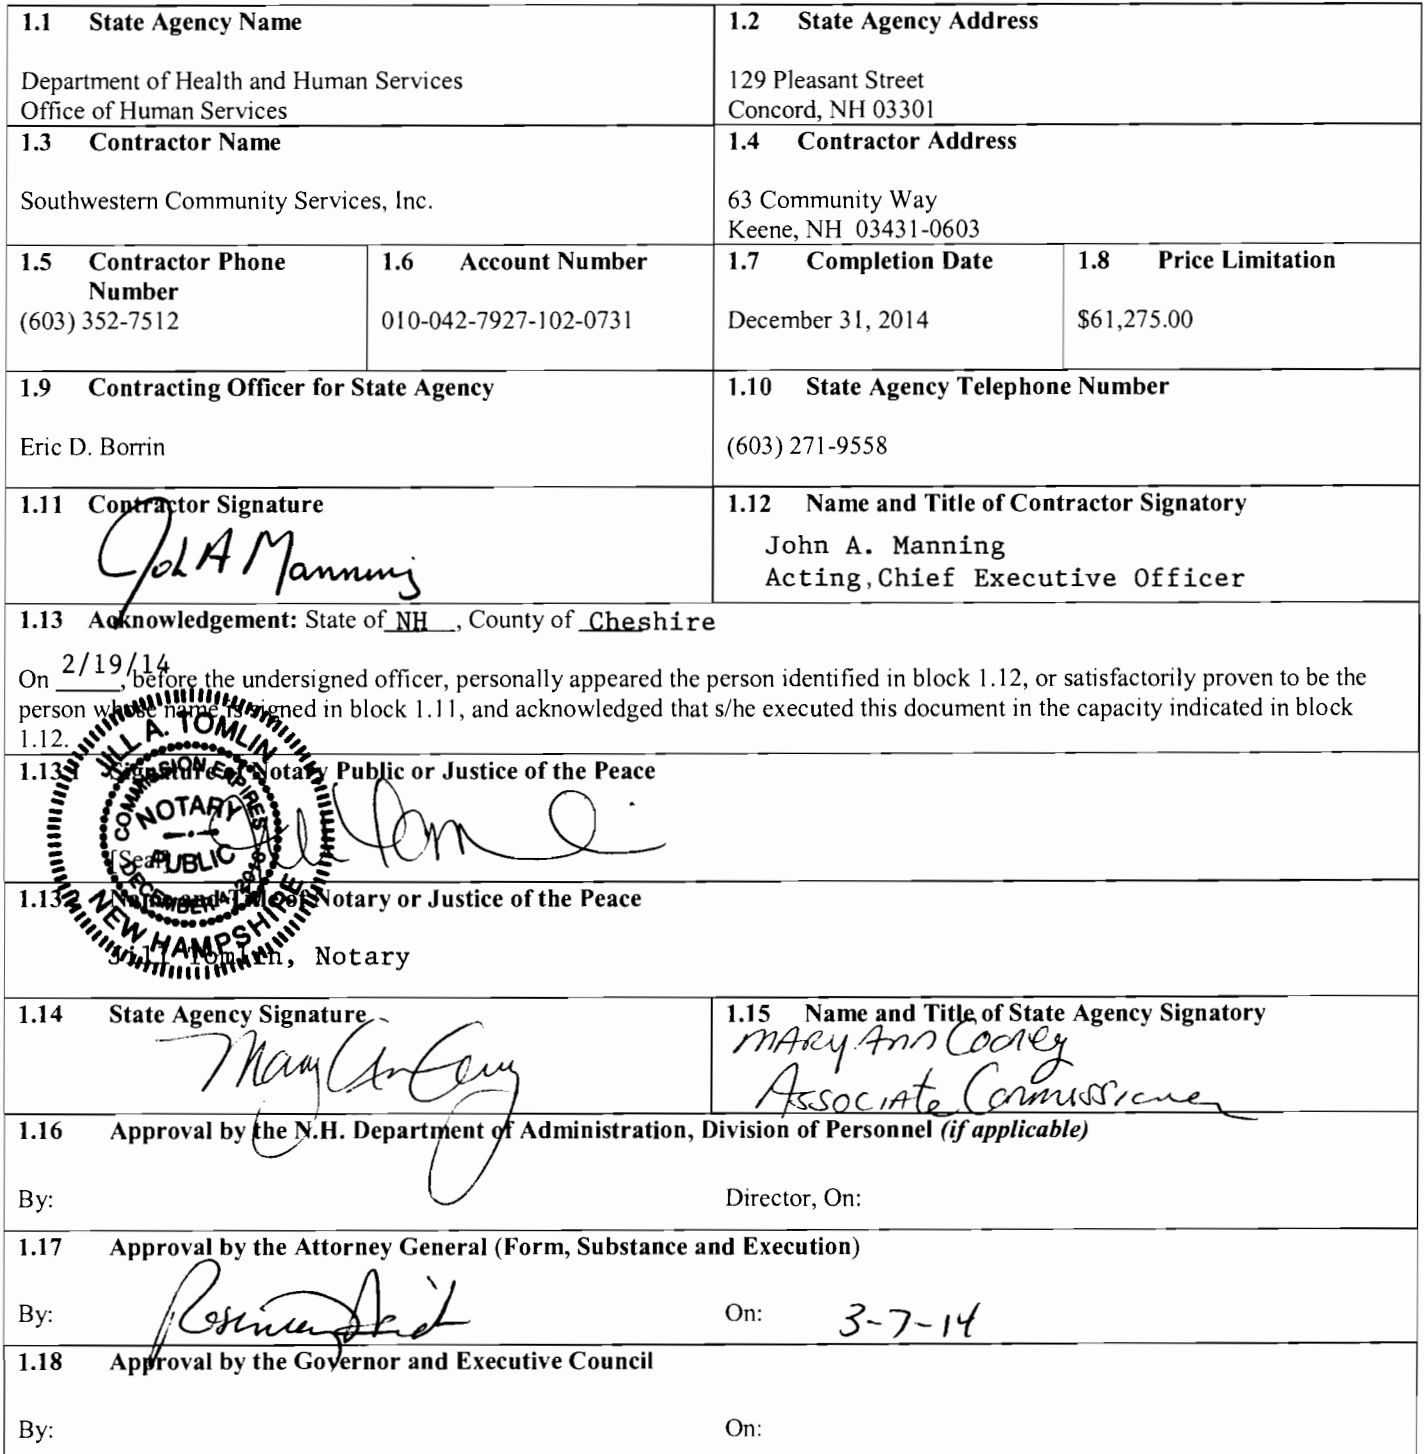 1.1 State Agency Name
Department of Health and Human Services
Office of Human Services
1.2 State Agency Address
129 Pleasant Street
Concord, NH 03301
1.3 Contractor Name
Southwestern Community Services, Inc.
1.4 Contractor Address
63 Community Way
Keene, NH 03431-0603
1.5 Contractor Phone
Number
(603) 352-7512
1.6 Account Number
010-042-7927-102-0731
1.7 Completion Date
December 31, 2014
1.8 Price Limitation
$61,275.00
1.9 Contracting Officer for State Agency
Eric D. Borrin
1.10 State Agency Telephone Number
(603) 271-9558
1.11 Contractor Signature
John A Manning
1.12 Name and Title of Contractor Signatory
John A. Manning
Acting,Chief Executive Officer
1.13 Acknowledgement: State of NH , County of Cheshire
On 2/19/14, before the undersigned officer, personally appeared the person identified in block 1.12, or satisfactorily proven to be the
person whose name is signed in block 1.11, and acknowledged that s/he executed this document in the capacity indicated in block
1.12.
1.13.1 Signature of Notary Public or Justice of the Peace
[Seal]
JILL A. TOMLIN
COMMISSION EXPIRES
NOTARY
PUBLIC
DECEMBER 4, 2018
NEW HAMPSHIRE
Jill Tomlin
1.13.2 Name and Title of Notary or Justice of the Peace
Jill Tomlin, Notary
1.14 State Agency Signature
Mary Ann Cooney
1.15 Name and Title of State Agency Signatory
MARY Ann Cooney
Associate Commissioner
1.16 Approval by the N.H. Department of Administration, Division of Personnel (if applicable)
By:
Director, On:
1.17 Approval by the Attorney General (Form, Substance and Execution)
By:
On: 3-7-14
1.18 Approval by the Governor and Executive Council
By:
On: